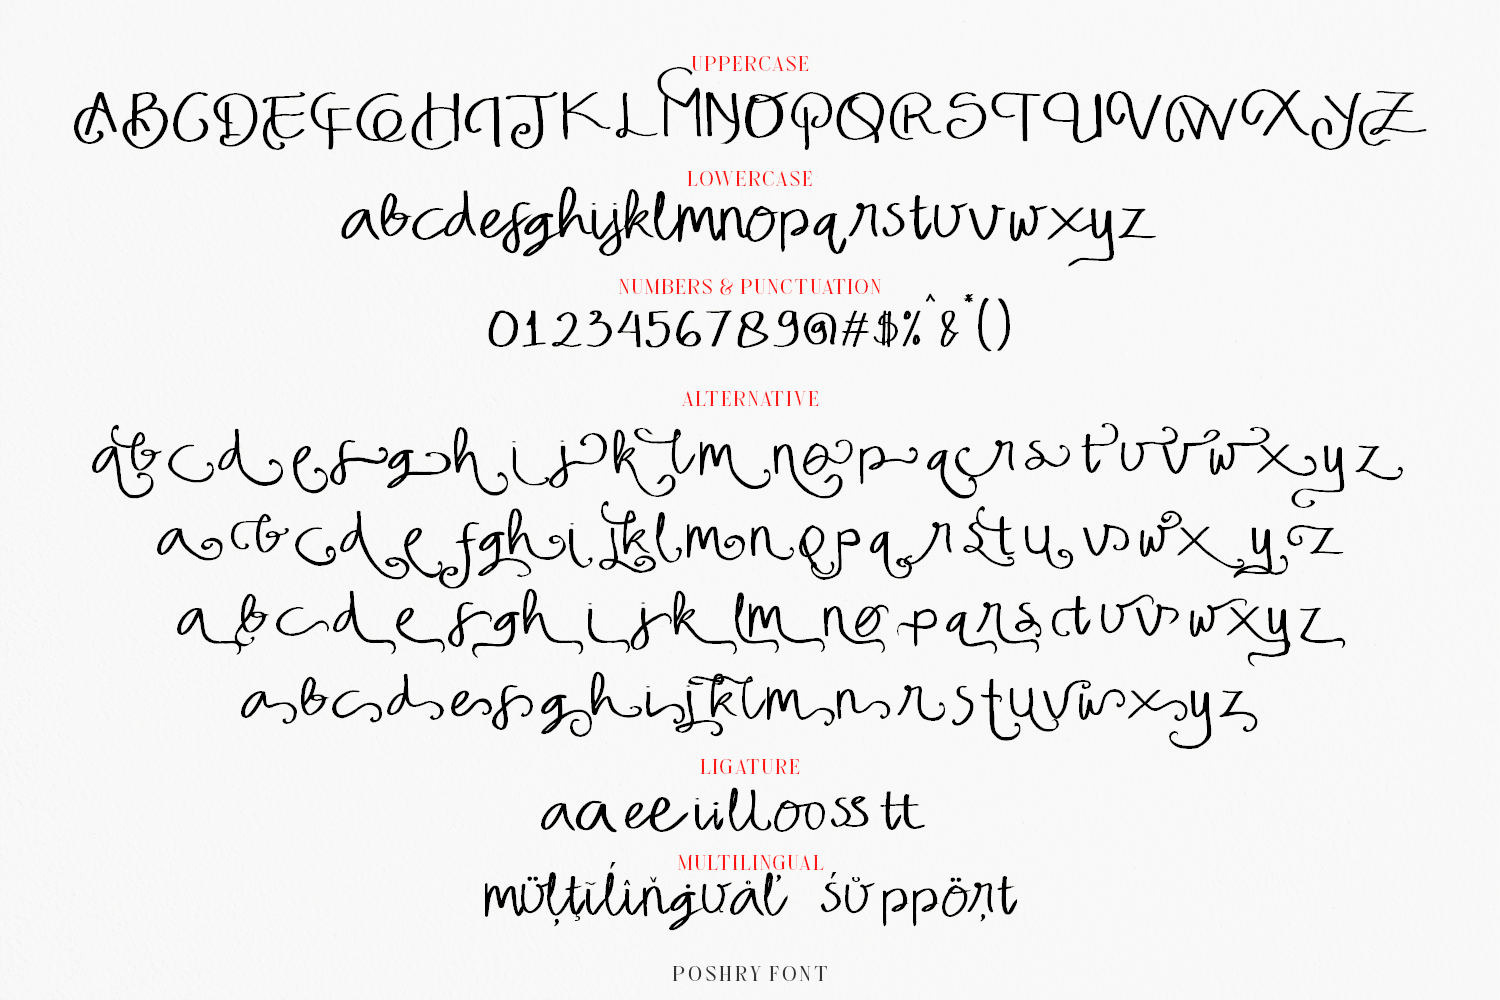 UPPERCASE
ABCDEFGHIJKLMNOPQRSTUVWXYZ
LOWERCASE
abcdefghijklmnopqrstuvwxyz
NUMBERS & PUNCTUATION
0123456789@#$%^&*()
ALTERNATIVE
abcdefghijklmnopqrstuvwxyz
abcdefghijklmnopqrstuvwxyz
abcdefghijklmnopqrstuvwxyz
abcdefghijklmnrstuvwxyz
LIGATURE
aaeeiilloosstt
MULTILINGUAL
müļţĩĺîňġưåľ śůppöŗt
POSHRY FONT